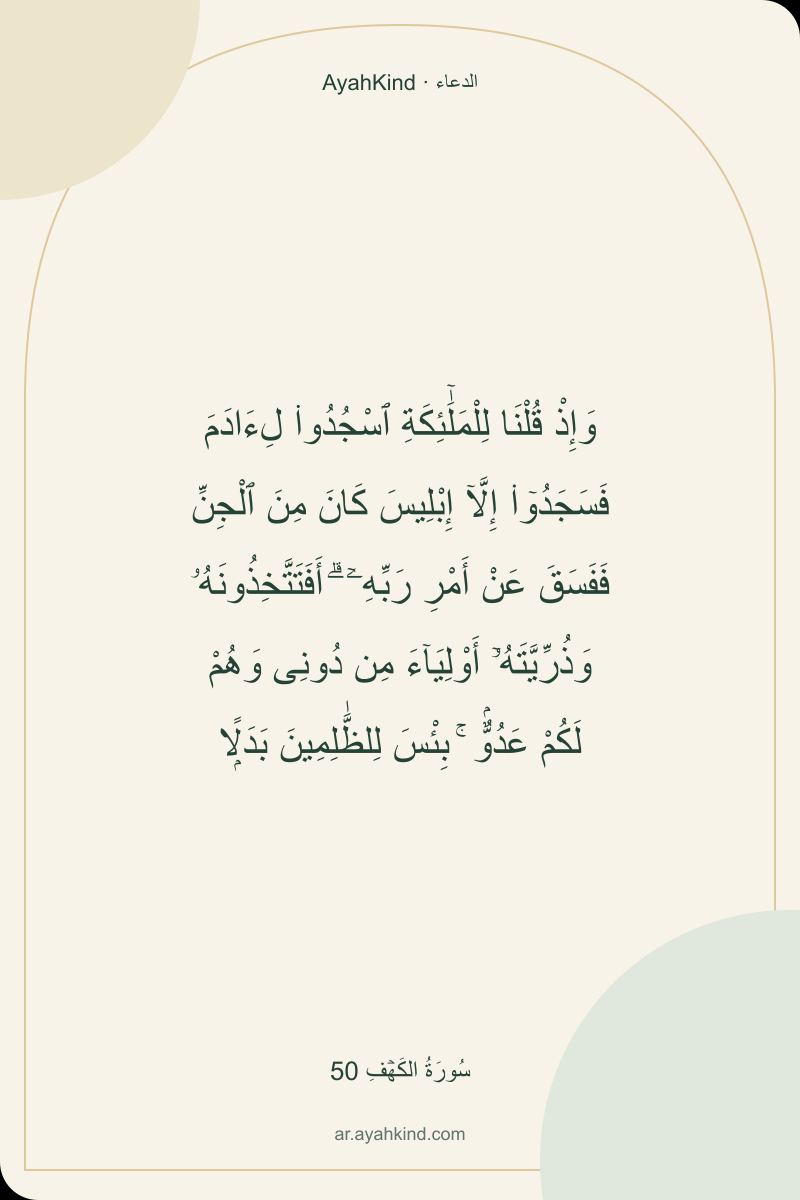 AyahKind · الدعاء
وَإِذْ قُلْنَا لِلْمَلَٰٓئِكَةِ ٱسْجُدُوا۟ لِـَٔادَمَ
فَسَجَدُوٓا۟ إِلَّآ إِبْلِيسَ كَانَ مِنَ ٱلْجِنِّ
فَفَسَقَ عَنْ أَمْرِ رَبِّهِۦٓ ۗ أَفَتَتَّخِذُونَهُۥ
وَذُرِّيَّتَهُۥٓ أَوْلِيَآءَ مِن دُونِى وَهُمْ
لَكُمْ عَدُوٌّۢ ۚ بِئْسَ لِلظَّٰلِمِينَ بَدَلًۭا
سُورَةُ الكَهۡفِ 50
ar.ayahkind.com